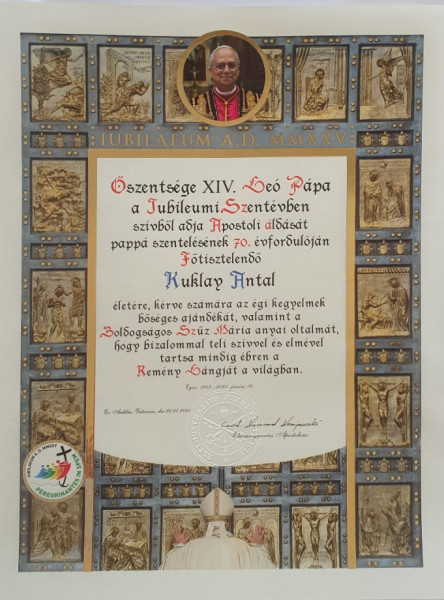 IUBILAEUM A.D. MMXXV
Őszentsége XIV. Leó Pápa
a Jubileumi Szentévben
szívből adja Apostoli áldását
pappá szentelésének 70. évfordulóján
Főtisztelendő
Kuklay Antal
életére, kérve számára az égi kegyelmek
bőséges ajándékát, valamint a
Boldogságos Szűz Mária anyai oltalmát,
hogy bizalommal teli szívvel és elmével
tartsa mindig ébren a
Remény Lángját a világban.
Eger, 1955 - 2025. június 19.
Ex Aedibus Vaticanis, die
Eleemosynarius Apostolicus
IUBILAEUM A.D. MMXXV
PEREGRINANTES IN SPEM